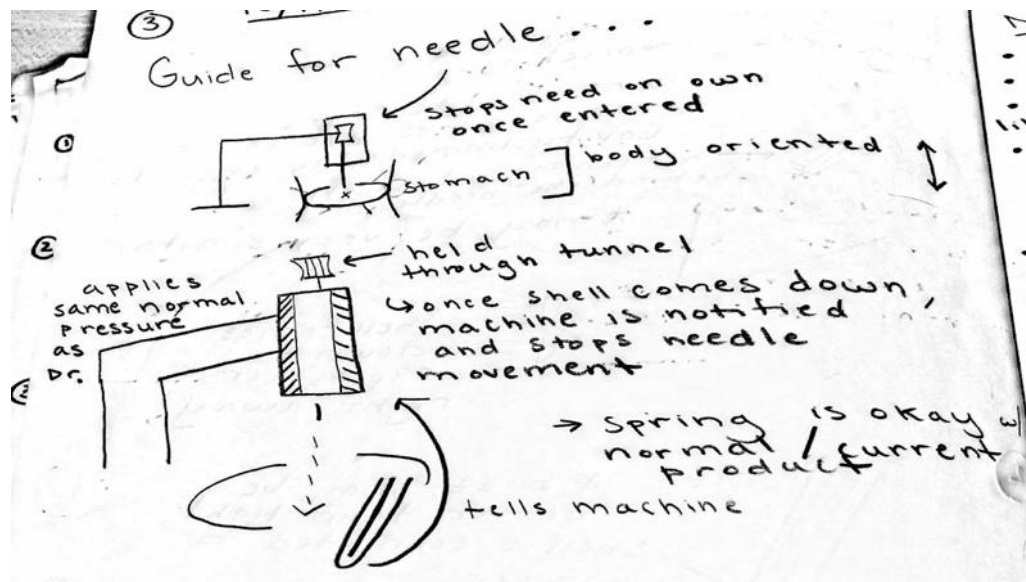 ③
Guide for needle ....
①
stops need on own
once entered
stomach
body oriented
②
held
through tunnel
applies
same normal
pressure
as
Dr.
↳ once shell comes down,
machine is notified
and stops needle
movement
→ spring is okay
normal / current
product
tells machine